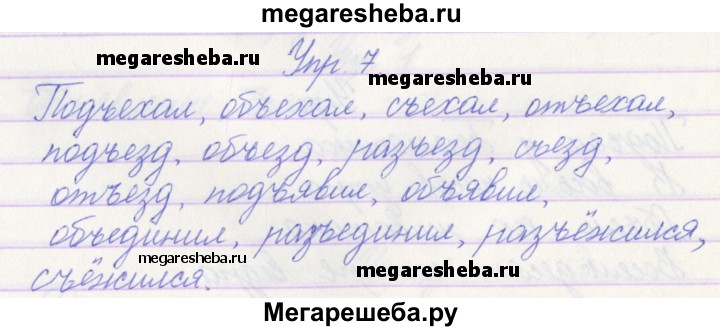 megaresheba.ru
megaresheba.ru
Упр. 7
megaresheba.ru
Подъехал, объехал, съехал, отъехал,
megaresheba.ru
подъезд, объезд, разъезд, съезд,
отъезд, подъявил, объявил,
megaresheba.ru
объединил, разъединил, разъёжился,
megaresheba.ru
съёжился.
Мегарешеба.ру